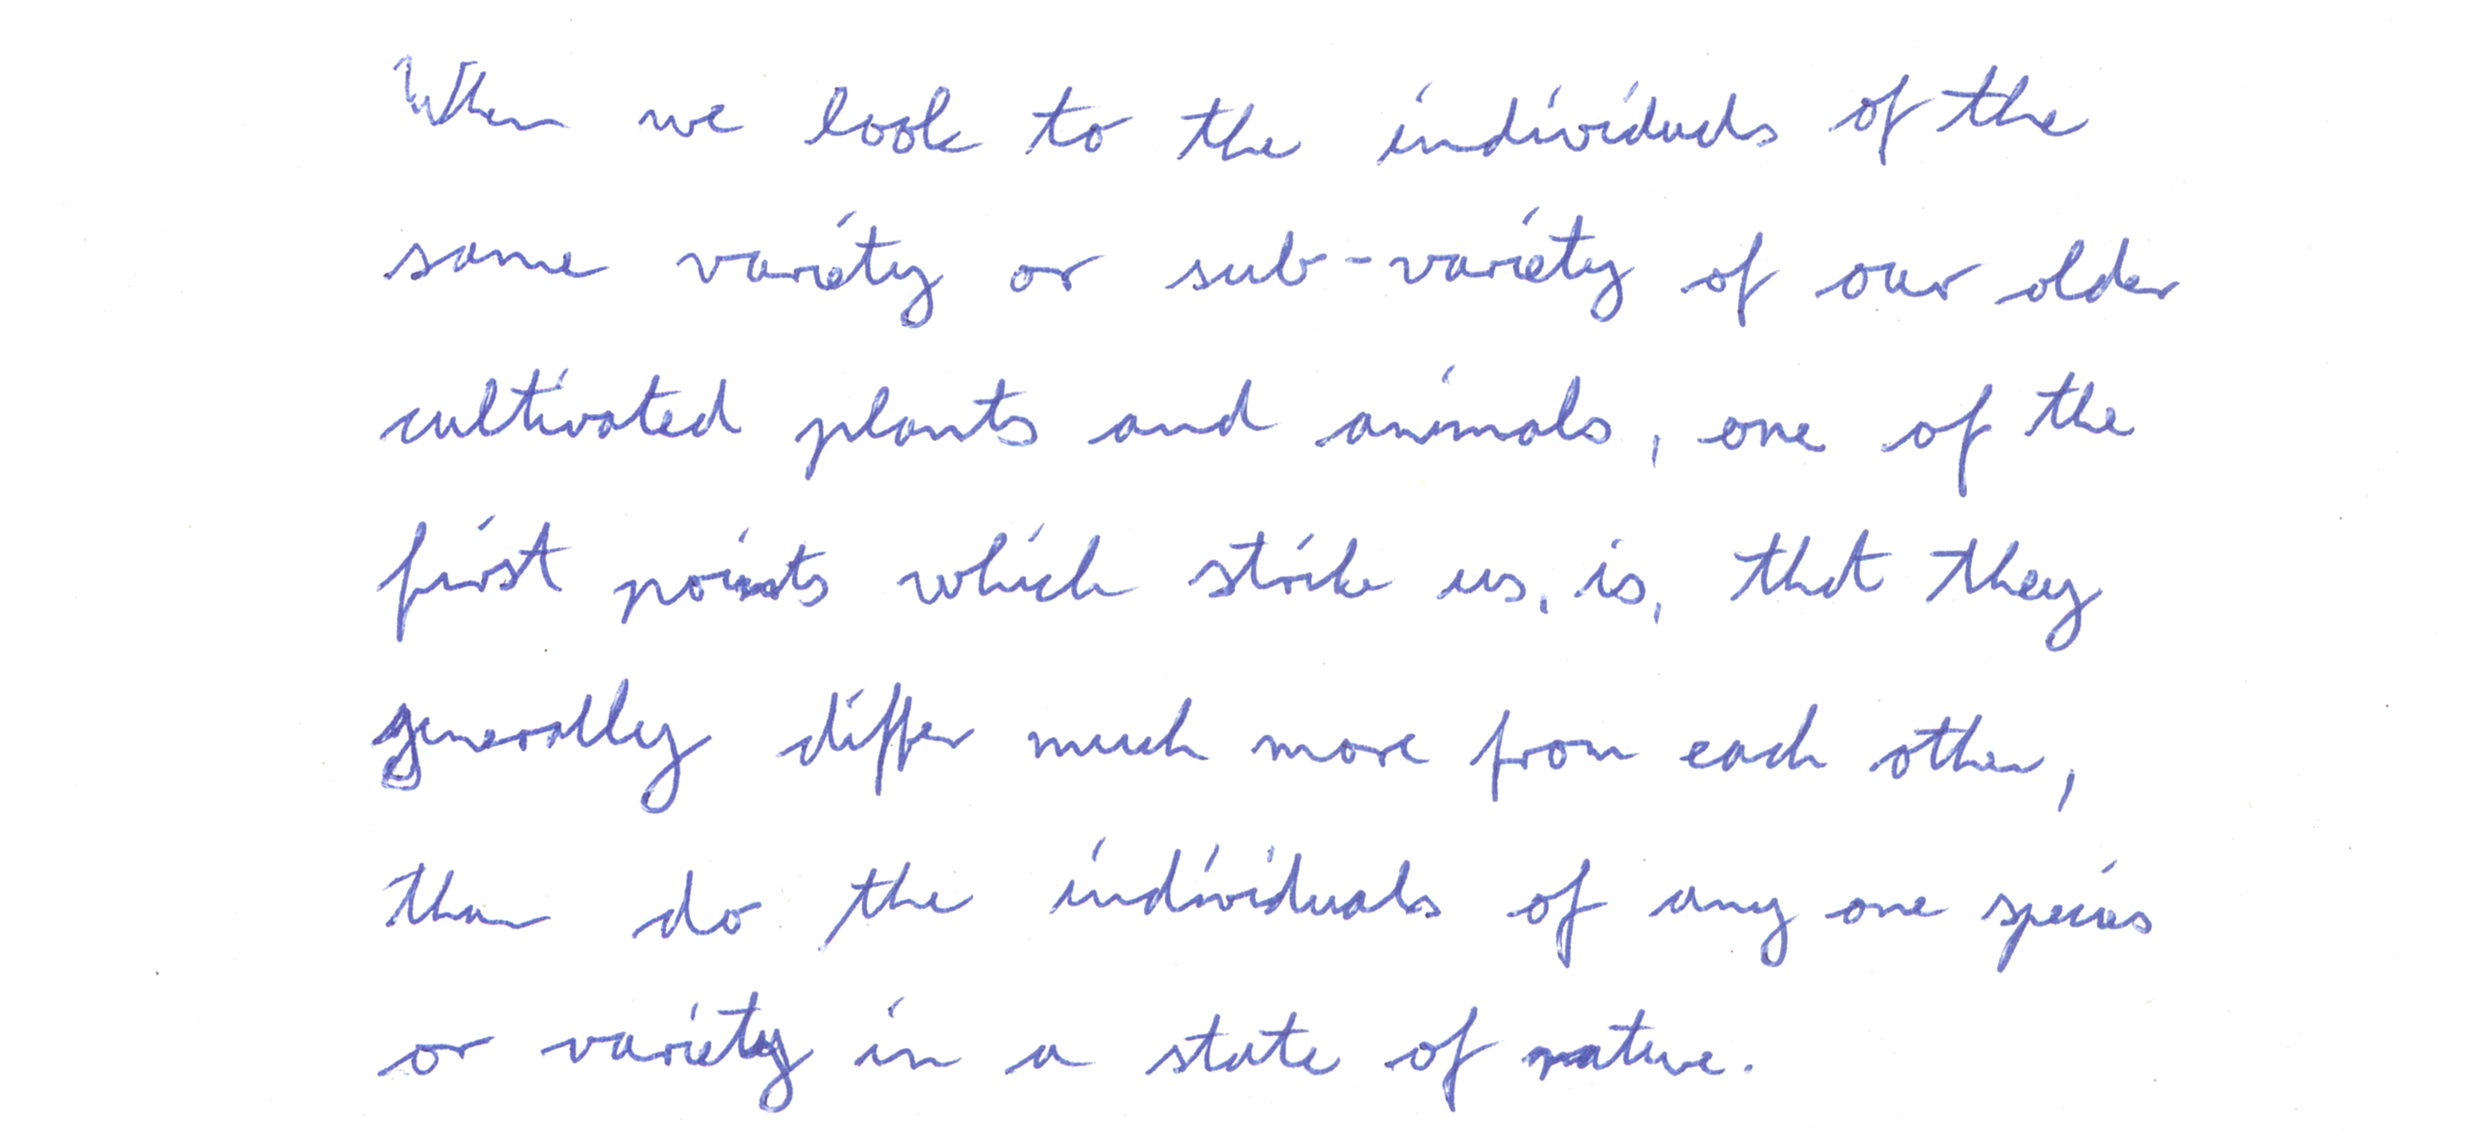 When we look to the individuals of the
same variety or sub-variety of our older
cultivated plants and animals, one of the
first points which strike us, is, that they
generally differ much more from each other,
than do the individuals of any one species
or variety in a state of nature.